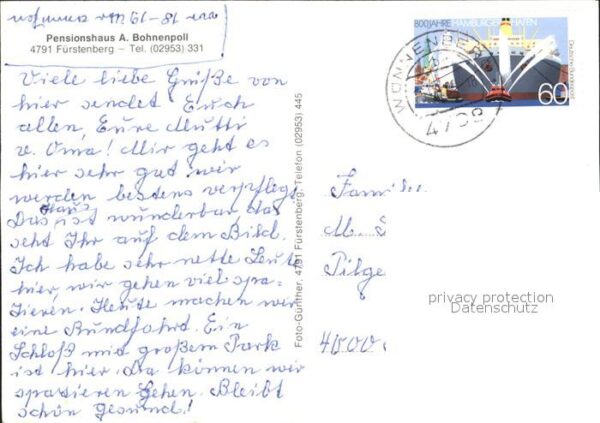 von 18-19 Uhr anrufen
Pensionshaus A. Bohnenpoll
4791 Fürstenberg – Tel. (02953) 331
Viele liebe Grüße von
hier sendet Euch
allen, Eure Mutti
u. Oma! Mir geht es
hier sehr gut wir
werden bestens verpflegt
Das Haus ist wunderbar, das
seht Ihr auf dem Bild.
Ich habe sehr nette Leute
hier, wir gehen viel spa-
zieren. Heute machen wir
eine Rundfahrt. Ein
Schloß mit großem Park
ist hier. Da können wir
spazieren gehen. Bleibt
schön gesund!
Foto-Günther, 4791 Fürstenberg, Telefon (02953) 445
800 JAHRE HAMBURGER HAFEN
Deutsche Bundespost
60
WÜNNENBERG
4798
Famili
M
Pilge
4000
privacy protection
Datenschutz